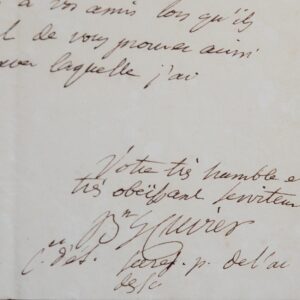 à vos amis lors qu'ils
de vous prouver aussi
laquelle j'ai
Votre très humble e
très obéissant serviteur
Bn G Cuvier
p. de l'ac
des sc